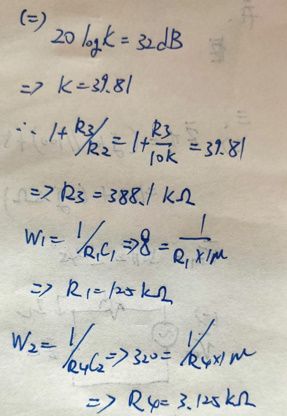 (二)
20 log K = 32 dB
=> K = 39.81
∴ 1 + R3/R2 = 1 + R3/10k = 39.81
=> R3 = 388.1 kΩ
W1 = 1/R1C1 => 8 = 1/R1×1μ
=> R1 = 125 kΩ
W2 = 1/R4C2 => 320 = 1/R4×1μ
=> R4 = 3.125 kΩ